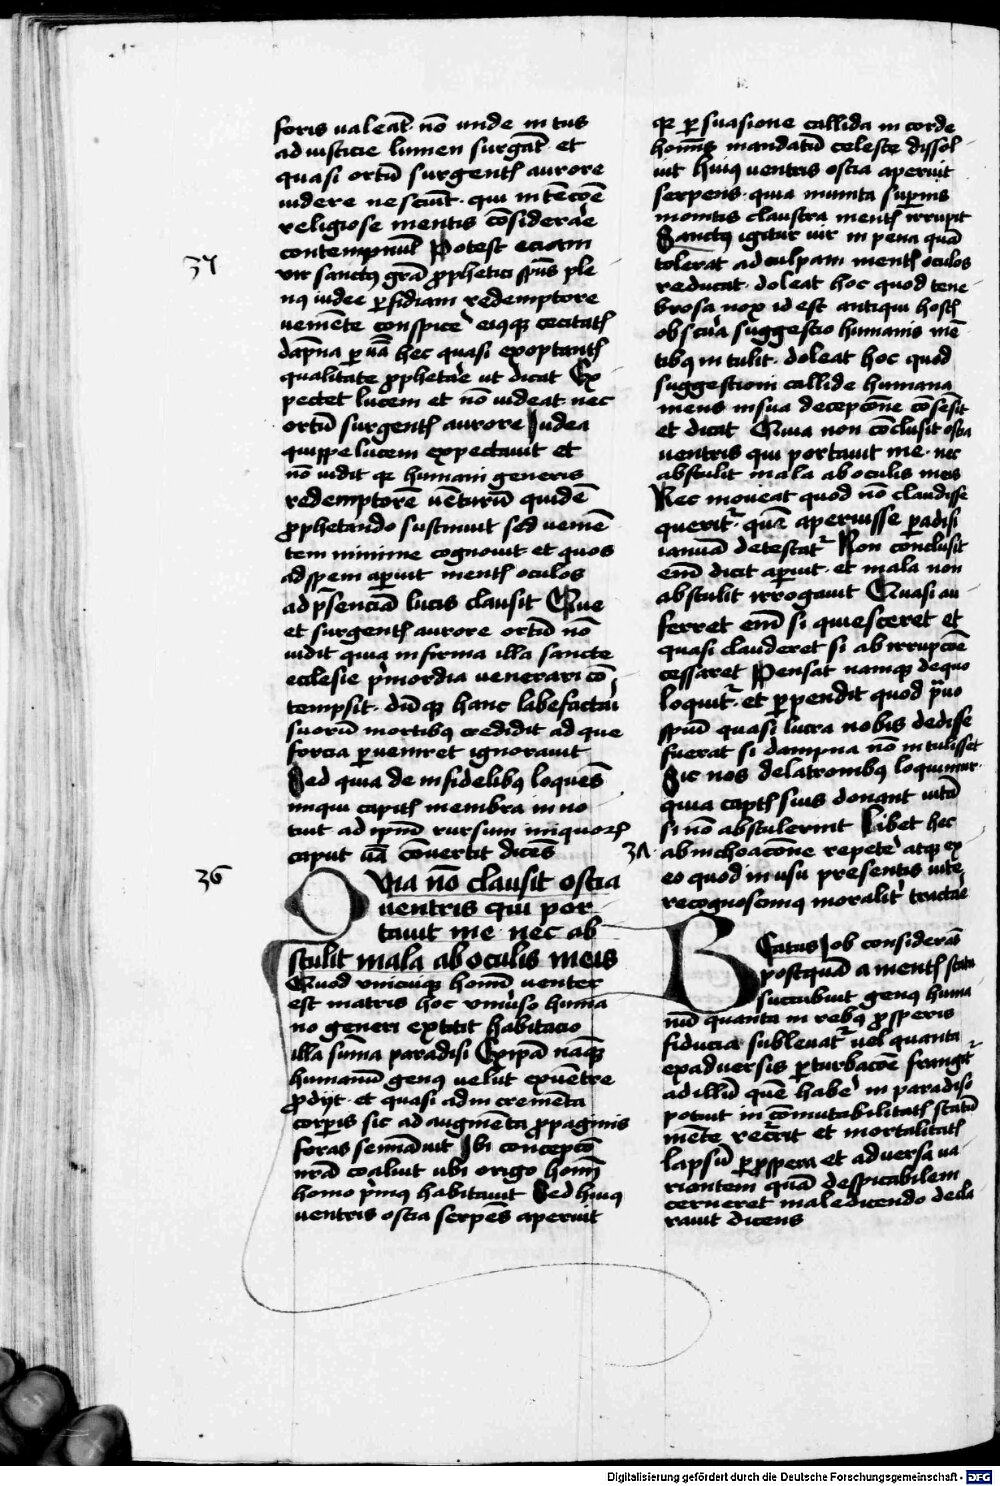 foris valeāt· nō unde intus
ad iusticie lumen surgāt· et
quasi ortū surgentꝭ aurore
videre nesciūt· qui intēcōē
religiose mentis cōsiderare
contempnūt Potest eciam
vir sanctꝰ grā prophetici spūs ple
nꝰ iudee perfidiam redemptore
veniēte conspicere eiꝰqꝫ cecitatꝭ
dāpna per uā hec quasi exoptantꝭ
qualitate prophetare ut dicat Ex
pectet lucem et nō videat· nec
ortū surgentꝭ aurore Iudea
quippe lucem expectavit et
nō vidit qꝛ humani generis
redemptorē vēturū quidē
prophetando sustinuit sed venien
tem minime cognovit· et quos
ad spem aperuit mentꝭ oculos
ad pn̄senciā lucis clausit Que
et surgentꝭ aurore ortū nō
vidit quia infirma illa sancte
ecclesie primordia venerari cō
tempsit· dūqꝫ hanc labefactari
suorū mortibꝰ credidit ad que
forcia perveniret ignoravit
Sed quia de infidelibꝰ loquens
iniqui capitꝭ membra inno
tuit ad ipm̄ rursum iniquoꝝ
caput uā cōvertit dicēs
37
36
Quia nō clausit ostia
ventris qui por
tavit me nec ab
stulit mala ab oculis meis
Quod unicuiqꝫ homī venter
est matris hoc universo huma
no generi extitit habitacio
illa sūma paradisi Ex ipā nāqꝫ
humanū genꝰ velut ex vētre
prodijt· et quasi ad incremēta
corporis sic ad augmēta propaginis
foras semanavit Ibi concepcō
nrā coaluit ubi origo homī
homo primꝰ habitavit Sed huiꝰ
ventris ostia serpēs aperuit
qꝛ persuasione callida in corde
hominis mandatū celeste dissol
vit huiꝰ ventris ostia aperuit
serpens· quia munita supernis
monitis claustra mentꝭ irrupit
Sanctus igitur vir in pena quā
tolerat ad culpam mentꝭ oculos
reducat· doleat hoc quod tene
brosa nox id est antiqui hostꝭ
obscura suggestio humanis mē
tibꝰ intulit· doleat hoc quod
suggestioni callide humana
mens in sua decepcōne cōsēsit
et dicat Quia non cōclusit ostia
ventris qui portavit me· nec
abstulit mala ab oculis meis
Nec moveat quod nō clausisse
querit᷑· quē aperuisse paradisi
ianuā detestat᷑ Non conclusit
enī dicit aperuit· et mala non
abstulit irrogavit Quasi au
ferret enī si quiesceret et
quasi clauderet si ab irrupcōe
cessaret Pensat namqꝫ de quo
loquit᷑· et perpendit quod pravo
spiritū quasi lucra nobis dedisse
fuerat si dampna nō intulisset
Sic nos de latronibꝰ loquimur·
quia captꝭ suis donant vitā
si nō abstulerint Libet hec
38
ab inchoacōne repetere atqꝫ ex
eo quod in usu presentis vite
recognoscimꝰ moraliter tractare
Beatus Iob considerās
postquā a mentꝭ statu
succubuit genꝰ huma
nū quanta in rebꝰ prosperis
fiducia sublevat᷑ vel quanta
ex adversis perturbacōe frangat᷑
ad illū quē habere in paradiso
potuit incōmutabilitatꝭ statū
mēte recurrit et mortalitatꝭ
lapsū per prospera et adversa va
riantem quā despicabilem
cerneret maledicendo decla
ravit dicens
Digitalisierung gefördert durch die Deutsche Forschungsgemeinschaft - DFG